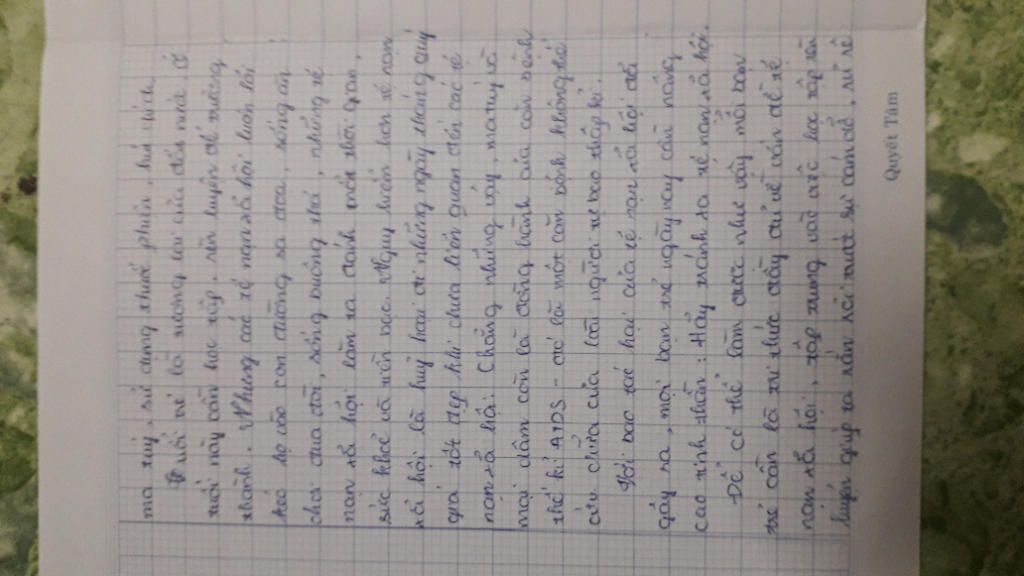 ma túy, sử dụng thuốc phiện, hút chích.
Tuổi trẻ là tương lai của đất nước. Ở
tuổi này cần học tập, rèn luyện để trưởng
thành. Nhưng các tệ nạn xã hội luôn lôi
kéo họ vào con đường sa đọa, sống ăn
chơi đua đòi, sống buông thả, những tệ
nạn xã hội làm ta đánh mất thời gian,
sức khoẻ và tiền bạc. Nguy hiểm hơn tệ nạn
xã hội là huỷ hoại đi những ngày tháng quý
giá tốt đẹp khi chưa liên quan đến các tệ
nạn xã hội. Chẳng những vậy, ma túy và
mại dâm còn là đồng hành của căn bệnh
thế kỉ AIDS - đó là một căn bệnh không thể
cứu chữa của loài người suốt bao thập kỉ.
Với bao tác hại của tệ nạn xã hội đã
gây ra, mọi bạn trẻ ngày nay cần nâng
cao tinh thần: Hãy tránh xa tệ nạn xã hội.
Để có thể làm được như vậy mỗi bạn
trẻ cần là tri thức đầy đủ về vấn đề tệ
nạn xã hội, tập trung vào việc học tập rèn
luyện giúp ta rắn rỏi trước sự cám dỗ, rủ rê
Quyết Tâm